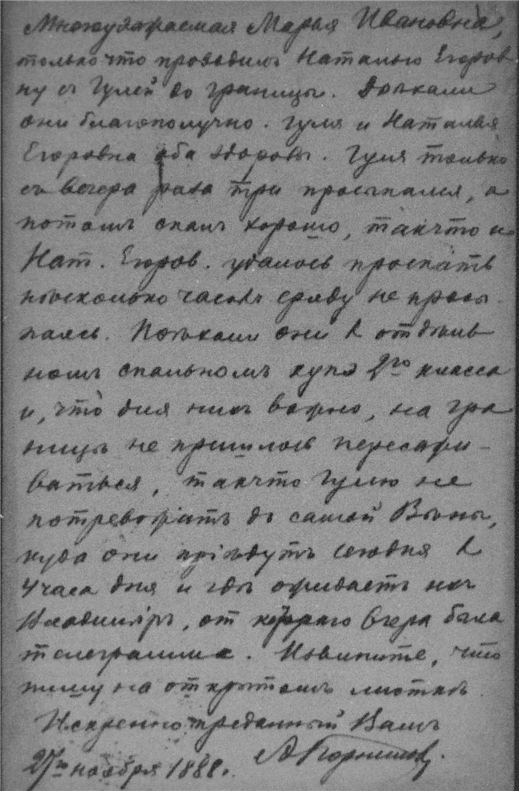 Многоуважаемая Марья Ивановна,
только что проводилъ Наталью Егоров
ну съ Гулей до границы. Доѣхали
они благополучно. Гуля и Наталья
Егоровна оба здоровы. Гуля только
съ вечера раза три просыпался, а
потомъ спалъ хорошо, такъ что и
Нат. Егоров. удалось проспать
нѣсколько часовъ сряду не просы
паясь. Поѣхали они въ отдѣль
номъ спальномъ купэ 2го класса
и, что для нихъ важно, на гра
ницѣ не пришлось пересажи-
ваться, такъ что Гулю не
потревожатъ до самой Вѣны,
куда они пріѣдутъ сегодня въ
4 часа дня и гдѣ ожидаетъ ихъ
Владиміръ, от котораго вчера была
телеграмма. Извините, что
пишу на открытомъ листкѣ.
Искренно преданный Вамъ
27го ноября 1888.